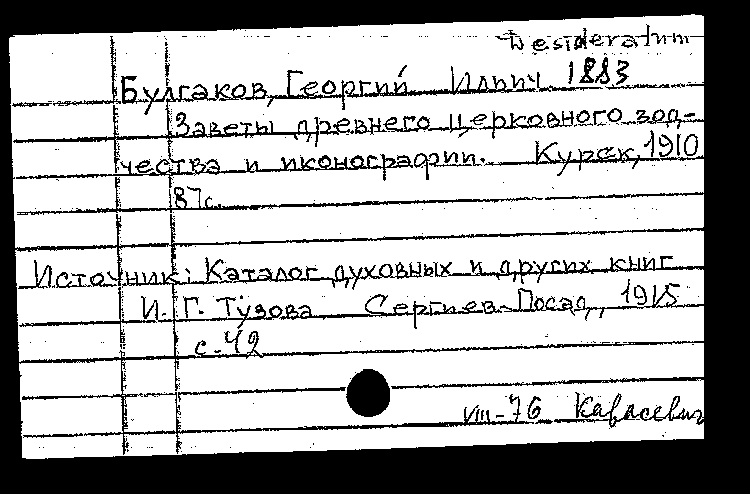 Desideratum
Булгаков, Георгий Ильич. 1883
Заветы древнего церковного зод-
чества и иконографии. Курск, 1910
87с.
Источник: Каталог духовных и других книг
И. Г. Тузова Сергиев-Посад, 1915
с. 42
VIII-76 Карасевич